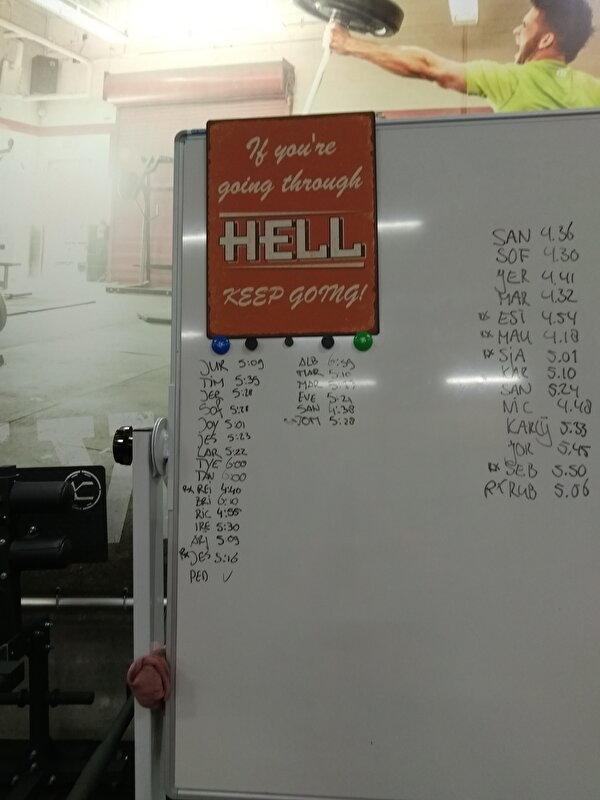 If you're
going through
HELL
KEEP GOING!
JUR 5:09
TIM 5:39
JER 5:28
SOF 5:28
JOY 5:01
JES 5:23
LAR 5:22
TYE 6:00
TAN 6:00
RX REI 4:40
BRI 6:10
RIC 4:55
IRE 5:30
ARJ 5:09
RX JES 5:16
PED ✓
ALB 6:59
MAR 5:10
MAR
EVE 5:24
SAN 4:38
TOM 5:28
SAN 4.36
SOF 4.30
YER 4.41
MAR 4.32
RX EST 4.54
RX MAU 4.18
RX SIA 5.01
KAR 5.10
SAN 5.24
NIC 4.48
KARIJ 5.33
JOR 5.45
RX SEB 5.50
RX RUB 5.06